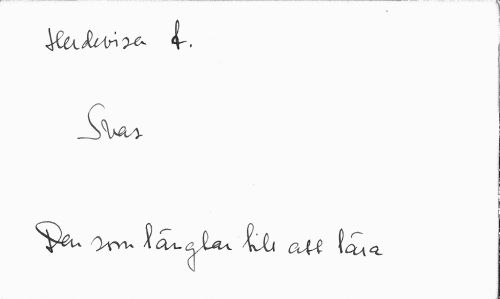 Herdevisa f.
Svas
Den som länglar till att lära